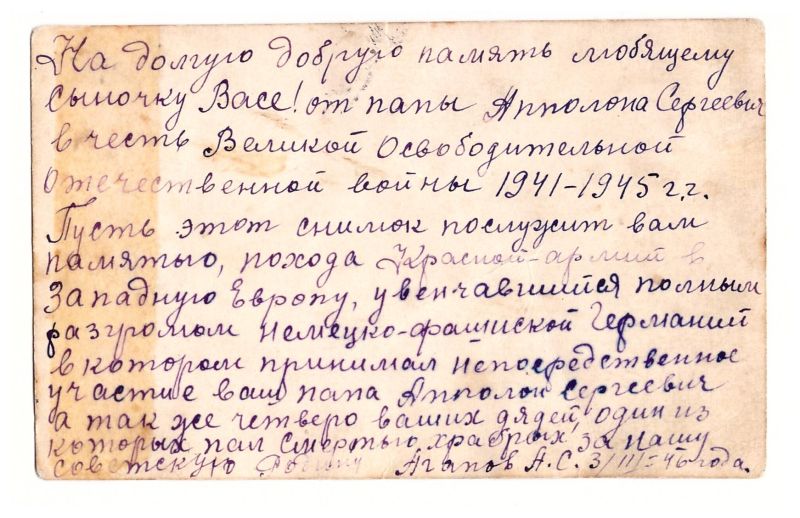 На долгую добрую память любящему
сыночку Васе! от папы Апполона Сергеевич
в честь Великой Освободительной
Отечественной войны 1941-1945 г.г.
Пусть этот снимок послужит вам
памятью, похода Красной-армий в
Западную Европу, увенчавшийся полным
разгромом Немецко-фашиской Германий
в котором принимал непосредственное
участие ваш папа Апполон Сергеевич
а так же четверо ваших дядей, один из
которых пал смертью храбрых, за нашу
советскую Родину Агапов А.С. 3/III-46 года.